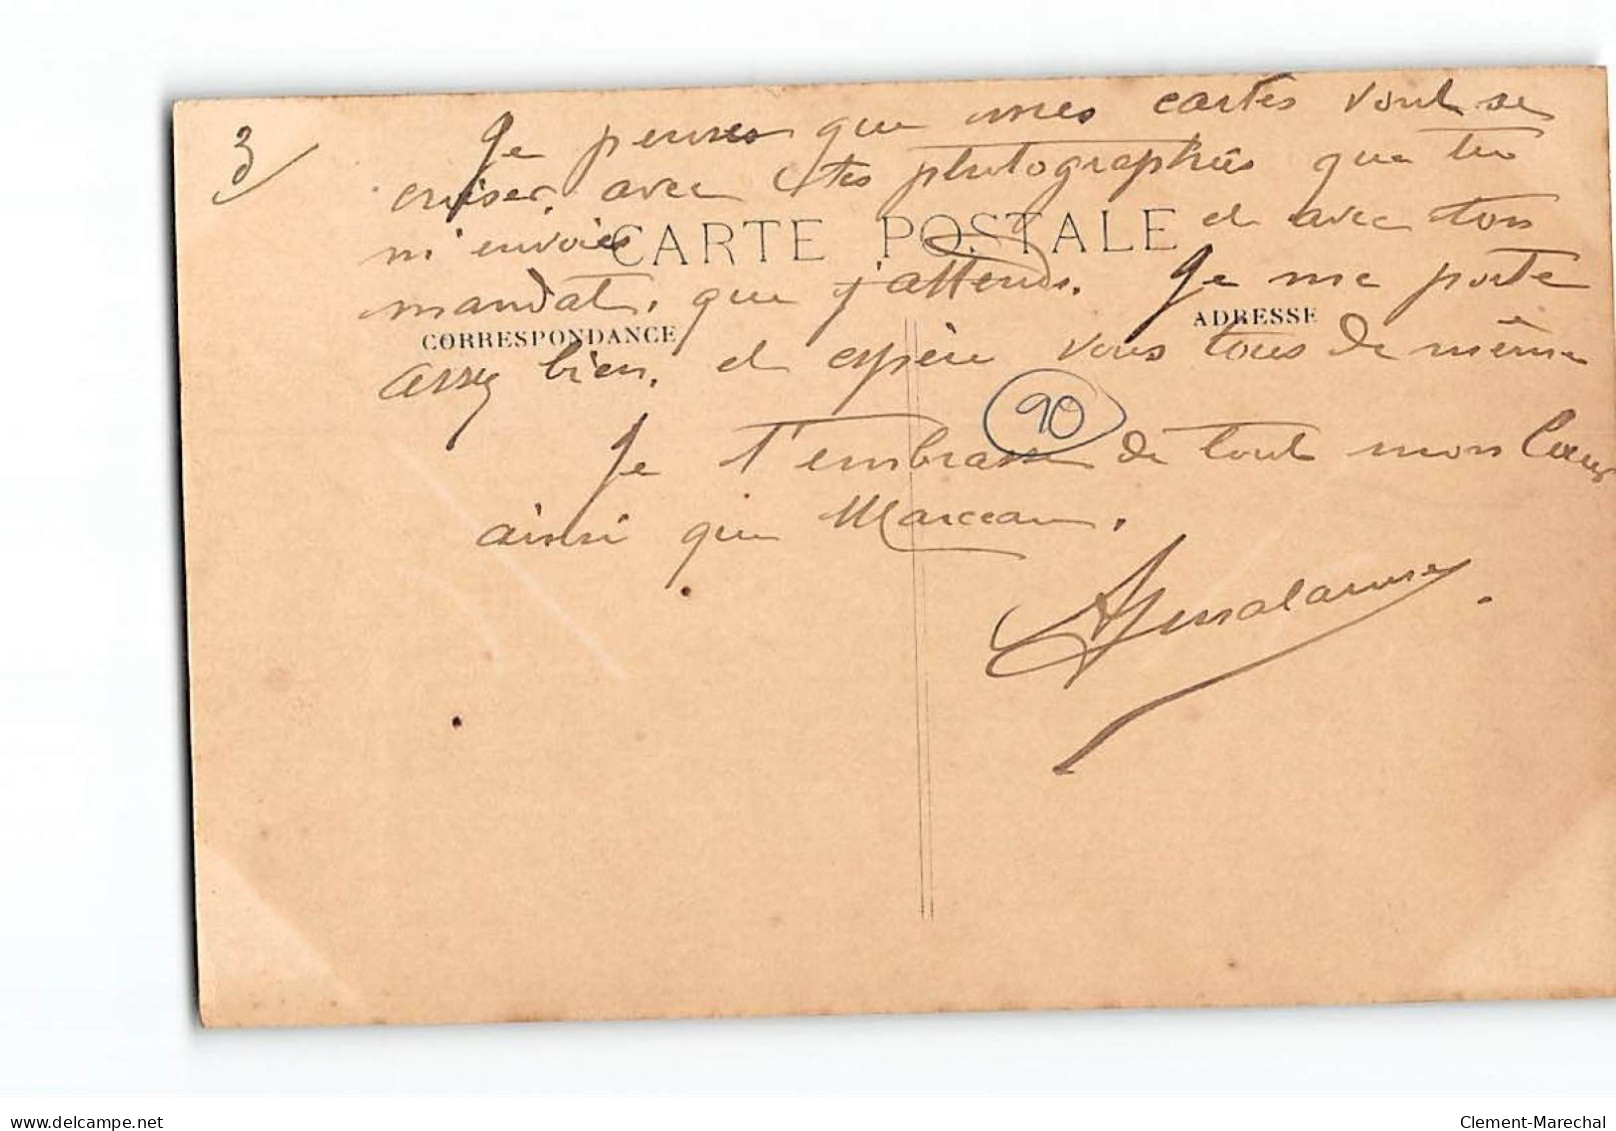 3
Je penses que mes cartes vont se
croiser, avec tes photographies que tu
m'envoies et avec ton
CARTE POSTALE
mandat, que j'attends. Je me porte
CORRESPONDANCE
ADRESSE
assez bien, et espère vous tous de même
90
Je t'embrasse de tout mon Coeur
ainsi que Marceau.
delcampe.net
Clement-Marechal